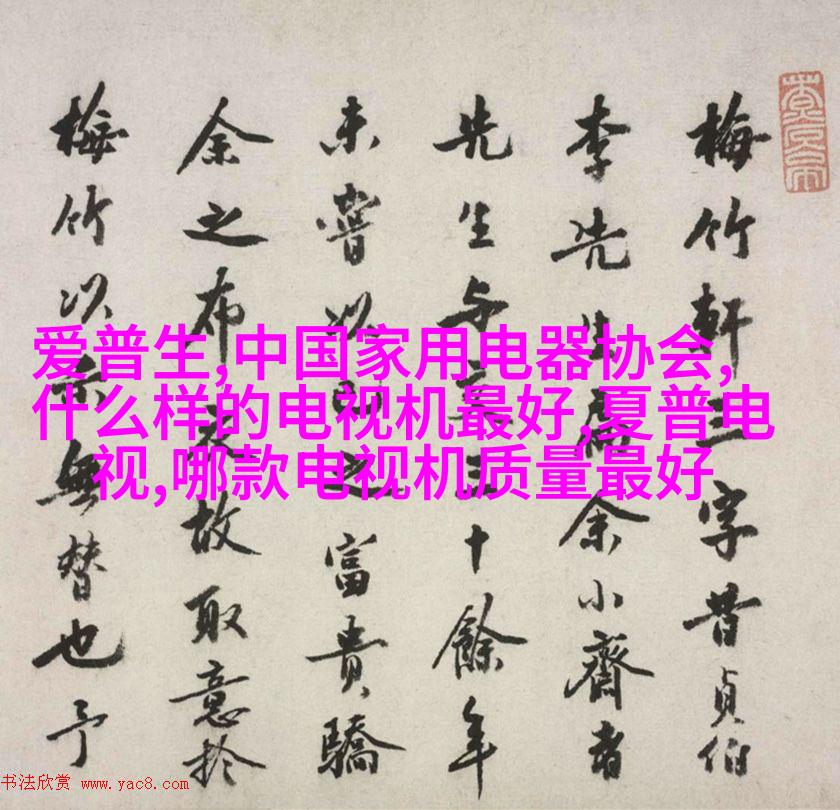 爱普生,中国家用电器协会,
什么样的电视机最好,夏普电
视,哪款电视机质量最好
梅竹軒三字昔貞伯
李先生為余小齋書
先生与三十餘年
未嘗以之富貴驕
余之布衣故取意於
梅竹以示無替也予
书法欣赏 www.yac8.com